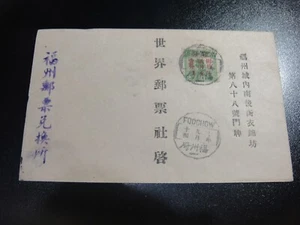 福州城內南後街衣錦坊
第八十八號門牌
世界郵票社啓
福州郵票兌換所
FOOCHOW
福州府